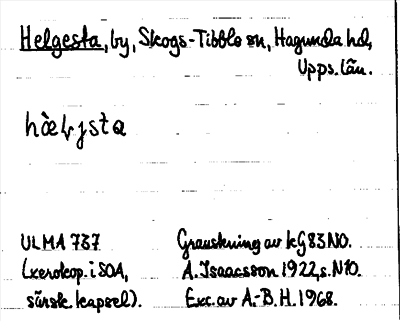 Helgesta, by, Skogs-Tibble sn, Hagunda hd,
Upps. län.
hæ̀lɟsta
ULMA 737
(xerokop. i SOA,
särsk. kapsel).
Granskning av kG 83 NO.
A. Isaacsson 1922, s. N10.
Exc. av A.-B. H. 1968.